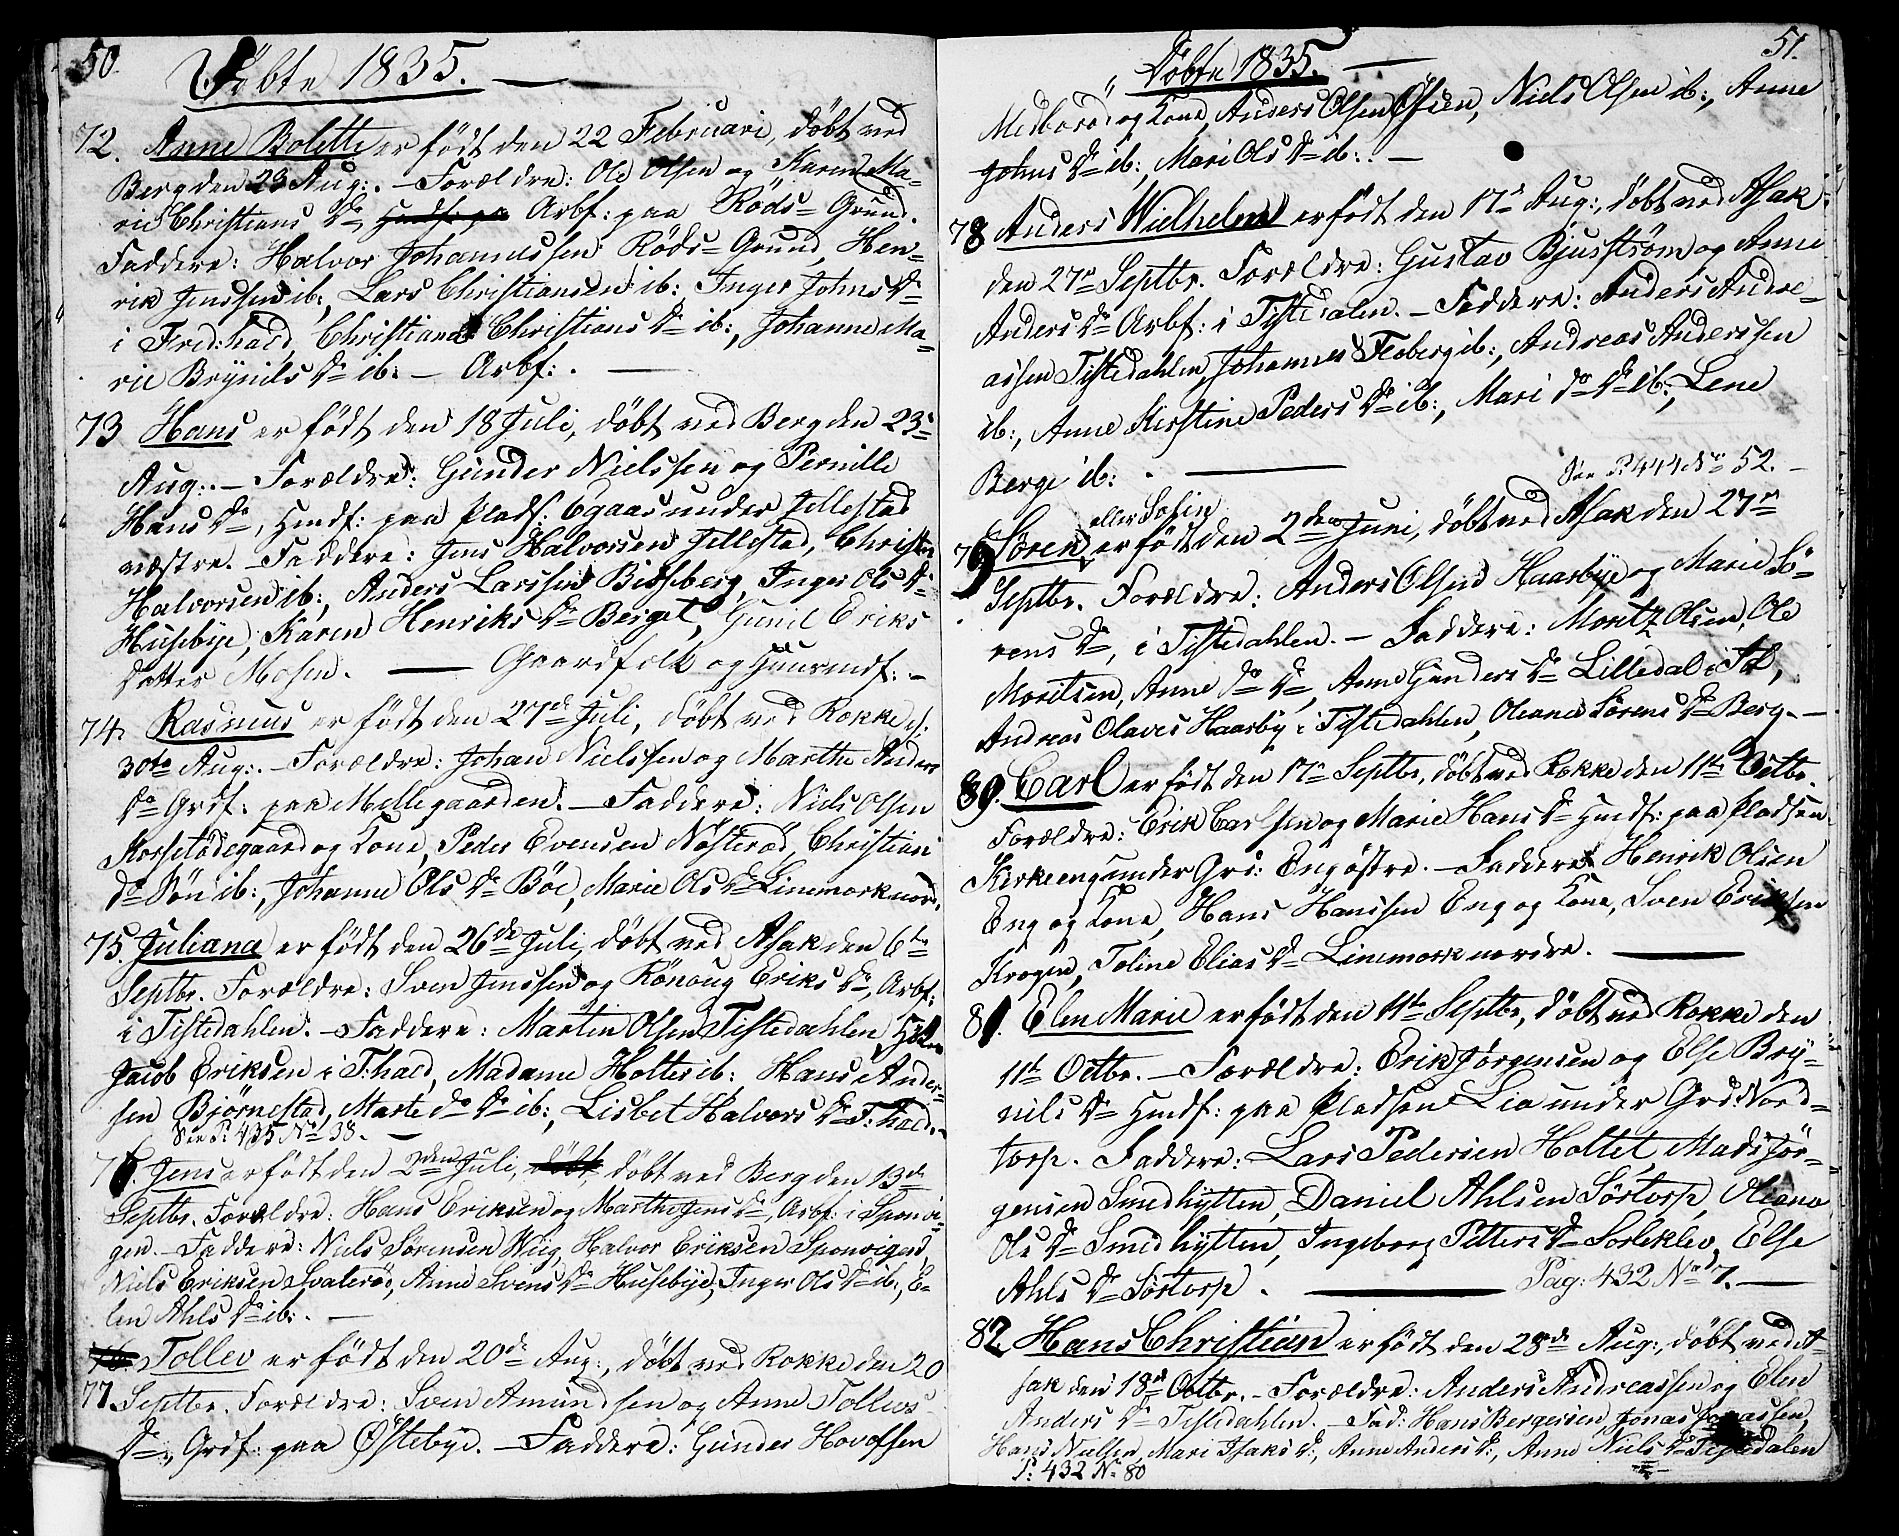 50.
Döbte 1835. —
72. Anne Bolette er födt den 22 Februari, döbt ved
Berg den 23 Aug:. — Forældre: Ole Olsen og Karen Ma-
rie Christians Dr Arbf: paa Röds-Grund.
Faddere: Halvor Johannessen Röds-Grund, Hen-
rik Jenssen ib:, Lars Christiansen ib: Inger Johns Dr
i Fred:hald, Christiane Christians Dr ib:, Johanne Ma-
rie Brynils Dr ib: — Arbf: . —
73 Hans er födt den 18 Juli, döbt ved Berg den 23de
Aug:. — Forældre: Gunder Nielssen og Pernille
Hans Dr, Hmdf: paa Plads: Egaas under Jellestad
væstre. — Faddere: Jens Halvorsen Jellestad, Christen
Halvorsen ib:, Anders Larssen Bissberg, Inger Ols Dr
Husebye, Karen Henriks Dr Berget, Gunil Eriks
Datter Mosen. — Gaardfolk og Huusmdf: —
74. Rasmus er födt den 27de Juli, döbt ved Rokke d:
30te Aug:. — Forældre: Johan Nielssen og Marthe Anders
Dr Grdf: paa Mellegaarden. — Faddere: Niels Olsen
Korsetödegaard og Kone, Peder Evensen Nösteröd, Christian
do Bön ib:, Johanne Ols Dr Böe, Marie Ols Dr Linemark nord.
75. Juliana er födt den 26de Juli, döbt ved Asak den 6te
Septbr. Forældre: Sven Jenssen og Rönaug Eriks Dr, Arbf:
i Tistedahlen. — Faddere: Martin Olsen Tistedahlen,
Jacob Eriksen i F:hald, Madame Holter ib: Hans Ander-
sen Björnestad, Marte do Dr ib:, Lisbet Halvors Dr F:hald. —
See P: 435 No 38. —
76. Jens er födt den 2den Juli, döbt ved Berg den 13de
Septbr. Forældre: Hans Eriksen og Marthe Jens Dr, Arbf: i Sponvi-
gen. — Faddere: Niels Sörensen Wiig, Halvor Eriksen Sponvigen,
Niels Eriksen Svaleröd, Anne Svens Dr Husebye, Inger Ols Dr ib:, E-
len Ahls Dr ib: . —
Tollev er födt den 20de Aug:, döbt ved Rokke den 20
77. Septbr. Forældre: Sven Amundsen og Anne Tollevs
Dr, Grdf: paa Östebye. — Faddere: Gunder Hovelsen
51.
Döbte 1835. —
Medboröd og Kone, Anders Olsen, Niels Olsen ib:, Anne
Johns Dr ib:, Mari Ols Dr ib: . —
78 Anders Wielhelm er födt den 17de Aug:, döbt ved Asak
den 27de Septbr. Forældre: Gustav Bjusström og Anne
Anders Dr Arbf: i Tistedalen. — Faddere: Anders Andre-
assen Tistedahlen, Johannes Feeberg ib:, Andreas Anderssen
ib:, Anne Kirstine Peders Dr ib:, Mari do Dr ib:, Lene
Berge ib: . —
See P: 444 No 52. —
eller Sofin
79 Sören er födt den 2den Juni, döbt ved Asak den 27de
Septbr. Forældre: Anders Olsen Haarbye og Marie Sö-
rens Dr, i Tistedahlen. — Faddere: Moritz Olsen, Ole
Moritsen, Anne do Dr, Anne Gunders Dr Lilledal i Td,
Andreas Olaves Haarby i Tistedahlen, Oleane Sörens Dr Berg. —
80. Carl er födt den 17de Septbr, döbt ved Rokke den 11te Octbr.
Forældre: Erik Carlsen og Marie Hans Dr Hmdf: paa Pladsen
Kirkeeng under Grd: Eng östre. — Faddere: Henrik Olsen
Eng og Kone, Hans Hanssen Eng og Kone, Sven Eriksen
Krogen, Toline Elias Dr Linemark nordre. —
81. Elen Marie er födt den 11te Septbr, döbt ved Rokke den
11te Octbr. — Forældre: Erik Jörgensen og Else Bry-
nils Dr Hmdf: paa Pladsen Lia under Grd: Nord-
torp. Faddere: Lars Pedersen Holtet, Mads Jör-
gensen Smedhytten, Daniel Ahlsen Sörtorp, Oleana
Ols Dr Smedhytten, Ingeborg Petters Dr Sorleklev, Else
Ahls Dr Sörtorp . — Pag: 432 No 7. —
82. Hans Christian er födt den 28de Aug:, döbt ved A-
sak den 18de Octbr. — Forældre: Anders Andreassen og Elen
Anders Dr Tistedahlen. — Fad: Hans Bergersen, Jonas Jonassen,
Hans Nielsen, Mari Isaks D:, Anne Anders D:, Anne Niels Dr Tistedalen
P: 432 No 80